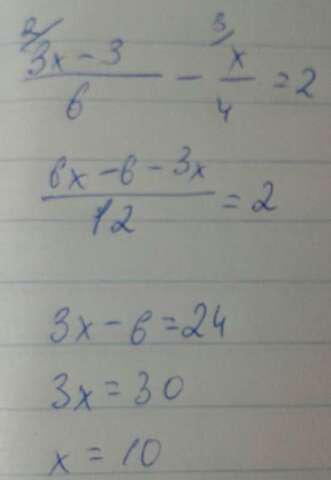 ²⁄(3x-3)/6 - ³⁄x/4 = 2
(6x-6-3x)/12 = 2
3x-6=24
3x=30
x=10